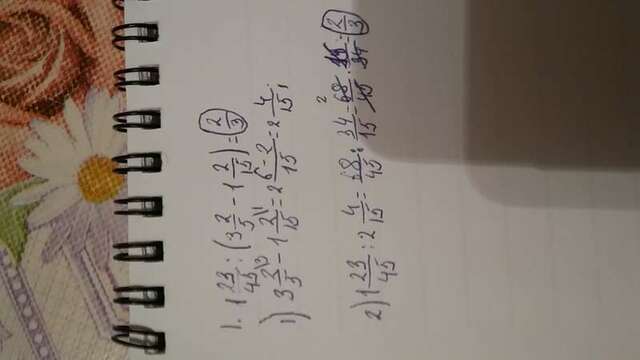 1. 1 23/45 : (3 2/5 - 1 2/15) = 2/3
1) 3 2\3/5 - 1 2\1/15 = 2 6-2/15 = 2 4/15;
2) 1 23/45 : 2 4/15 = 68/45 : 34/15 = 2 68/45 · 15/34 = 2/3